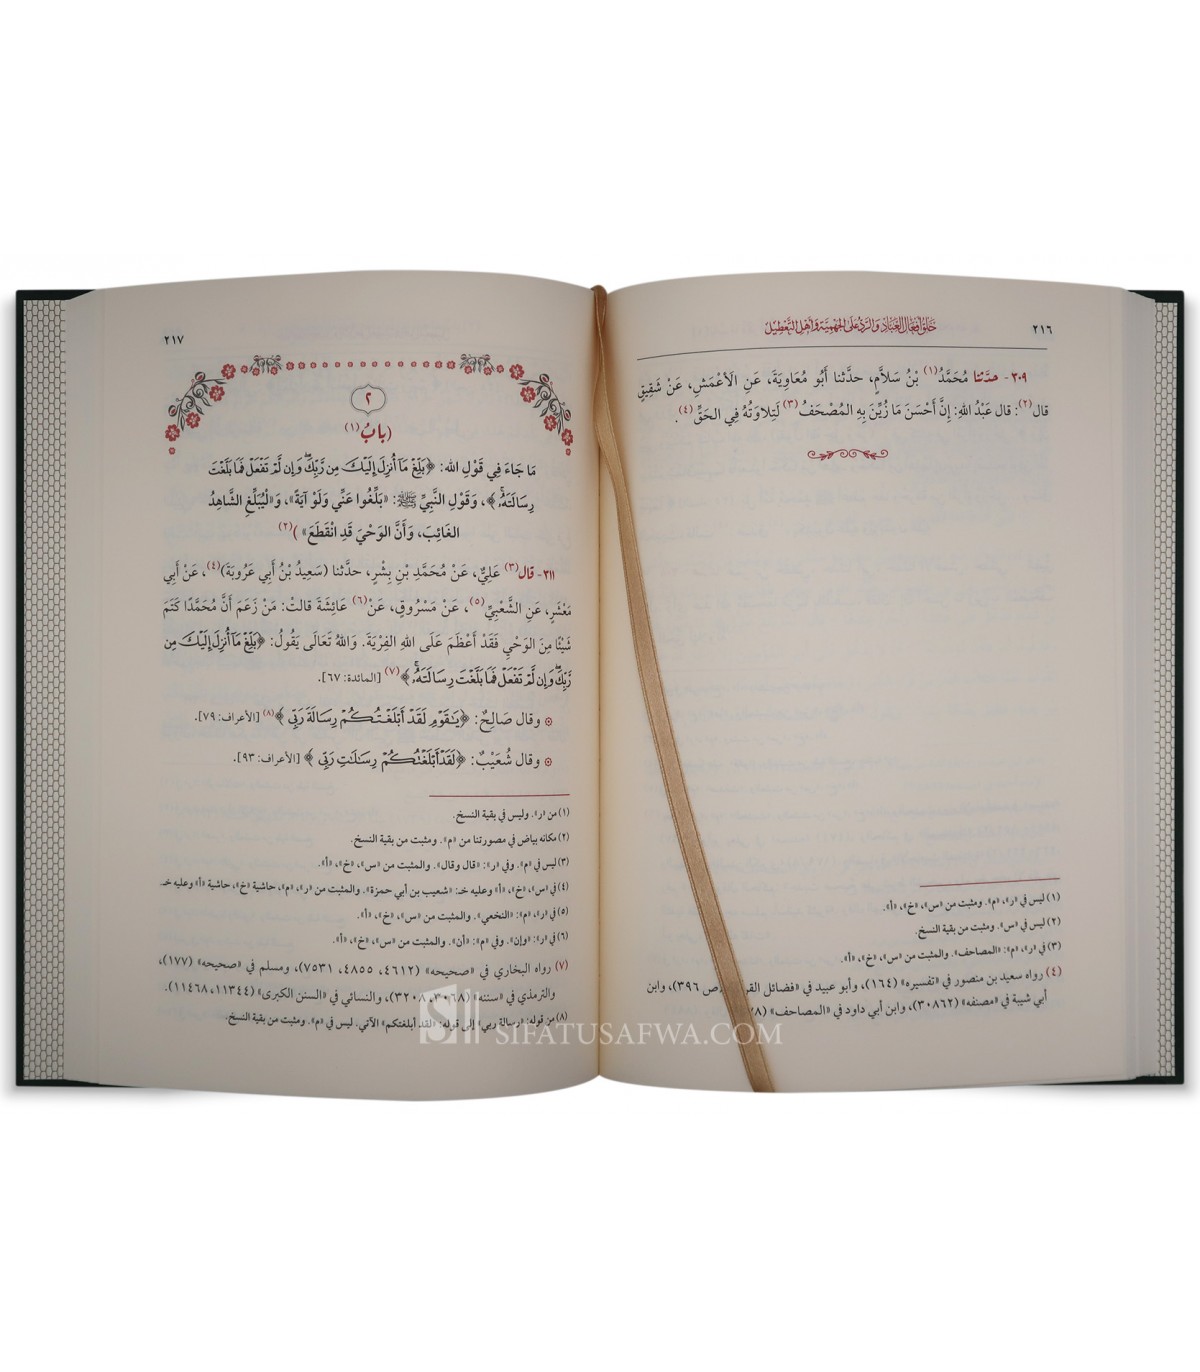 ٢١٦
خلق أفعال العباد والرد على الجهمية وأهل التعطيل
٣٠٩- حدَّثنا مُحَمَّدُ(١) بْنُ سَلَامٍ، حدَّثنا أَبُو مُعَاوِيَةَ، عَنِ الأَعْمَشِ، عَنْ شَقِيقٍ
قال(٢): قال عَبْدُ اللهِ: إِنَّ أَحْسَنَ مَا زُيِّنَ بِهِ المُصْحَفُ(٣) لَتِلَاوَتُهُ فِي الحَقِّ(٤).
(١) ليس في «ر»، «م». ومثبت من «س»، «خ»، «أ».
(٢) ليس في «س». ومثبت من بقية النسخ.
(٣) في «ر»، «م»: «المصاحف». والمثبت من «س»، «خ»، «أ».
(٤) رواه سعيد بن منصور في «تفسيره» (١٦٤)، وأبو عبيد في «فضائل (ص ٣٩٦)، وابن
أبي شيبة في «مصنفه» (٣٠٨٦٢)، وابن أبي داود في «المصاحف»
٢١٧
٢
(بابُ(١)
مَا جَاءَ فِي قَوْلِ اللهِ: ﴿بَلِّغْ مَا أُنزِلَ إِلَيْكَ مِن رَّبِّكَ وَإِن لَّمْ تَفْعَلْ فَمَا بَلَّغْتَ
رِسَالَتَهُ﴾، وَقَوْلِ النَّبِيِّ ﷺ: «بَلِّغُوا عَنِّي وَلَوْ آيَةً»، وَ«لْيُبَلِّغِ الشَّاهِدُ
الغَائِبَ، وَأَنَّ الوَحْيَ قَدِ انْقَطَعَ» )(٢)
٣١١- قال(٣) عَلِيٌّ، عَنْ مُحَمَّدِ بْنِ بِشْرٍ، حدَّثنا (سَعِيدُ بْنُ أَبِي عَرُوبَةَ)(٤)، عَنْ أَبِي
مَعْشَرٍ، عَنِ الشَّعْبِيِّ(٥)، عَنْ مَسْرُوقٍ، عَنْ(٦) عَائِشَةَ قالتْ: مَنْ زَعَمَ أَنَّ مُحَمَّدًا كَتَمَ
شَيْئًا مِنَ الوَحْيِ فَقَدْ أَعْظَمَ عَلَى اللهِ الفِرْيَةَ. وَاللهُ تَعَالَى يَقُولُ: ﴿بَلِّغْ مَا أُنزِلَ إِلَيْكَ مِن
رَّبِّكَ وَإِن لَّمْ تَفْعَلْ فَمَا بَلَّغْتَ رِسَالَتَهُ﴾(٧) [المائدة: ٦٧].
وقال صَالِحٌ: ﴿يَٰقَوْمِ لَقَدْ أَبْلَغْتُكُمْ رِسَالَةَ رَبِّي﴾(٨) [الأعراف: ٧٩].
وقال شُعَيْبٌ: ﴿لَقَدْ أَبْلَغْتُكُمْ رِسَٰلَٰتِ رَبِّي﴾ [الأعراف: ٩٣].
(١) من «ر». وليس في بقية النسخ.
(٢) مكانه بياض في مصورتنا من «م». ومثبت من بقية النسخ.
(٣) ليس في «م». وفي «ر»: «قال وقال». والمثبت من «س»، «خ»، «أ».
(٤) في «س»، «خ»، «أ» وعليه خـ: «شعيب بن أبي حمزة». والمثبت من «ر»، «م»، حاشية «خ»، حاشية «أ» وعليه خـ
(٥) في «ر»، «م»: «النخعي». والمثبت من «س»، «خ»، «أ».
(٦) في «ر»: «وإن». وفي «م»: «أن». والمثبت من «س»، «خ»، «أ».
(٧) رواه البخاري في «صحيحه» (٤٦١٢، ٤٨٥٥، ٧٥٣١)، ومسلم في «صحيحه» (١٧٧)،
والترمذي في «سننه» (٣٠٦٨، ٣٢٠٨)، والنسائي في «السنن الكبرى» (١١٣٤٤، ١١٤٦٨).
(٨) من قوله: «رسالة ربي» إلى قوله: «لقد أبلغتكم» الآتي. ليس في «م». ومثبت من بقية النسخ.
SIFATUSAFWA.COM